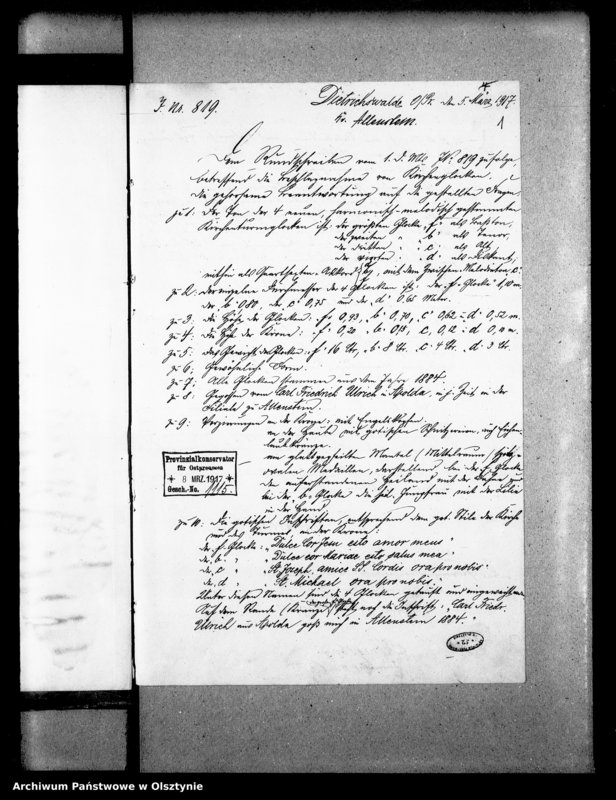 J. No. 819.
Dietrichswalde O/Pr. den 5. März 1917.
Kr. Allenstein.
1
Dem Rundschreiben vom 1. d. Mts. No: 819 zufolge,
betreffend die Beschlagnahme von Kirchenglocken,
die gehorsame Beantwortung auf die gestellten Fragen
zu 1: Der Ton der 4 neuen, harmonisch-melodisch gestimmten
Kirchenturmglocken ist: der größten Glocke „f" als Baßton,
der zweiten " „b" als Tenor,
der dritten " „c" als Alt,
der vierten " „d" als Diskant,
mithin als Quartsexten-Akkord, mit dem zwischen Melodieton „c".
zu 2: der einzelne Durchmesser der 4 Glocken ist: der „f" Glocke 1,10 m.
der „b" 0,80, des „c" 0,75 und der „d" 0,65 Meter.
zu 3: die Höhe der Glocken: „f" 0,93, „b" 0,70, „c" 0,62 u. „d" 0,52 m.
zu 4: die Höhe der Krone: „f" 0,20 „b" 0,18, „c" 0,12 „d" 0,11 m.
zu 5: das Gewicht der Glocken: „f" 16 Ctr, „b" 8 Ctr. „c" 4 Ctr. „d" 3 Ctr.
zu 6: Gewöhnliche Form.
zu 7: Alle Glocken stammen aus dem Jahre 1884.
zu 8: Gegossen von Carl Friedrich Ulrich in Apolda, z. Zeit in der
Filiale zu Allenstein.
zu 9: Verzierungen an der Krone: mit Engelsköpfen.
an der Haube mit gotischen Spitzen, mit Eichen-
laubkränze.
am glattgefeilten Mantel (Mittelraum) spitz-
ovalen Medaillon, darstellend bei der f. Glocke
den auferstandenen Heiland mit der Fahne und
bei der b Glocke die hl. Jungfrau mit der Lilie
in der Hand.
zu 10: Die gotischen Inschriften, entsprechend dem got. Stile der Kirche
und des Turmes, in der Krone:
de. f. Glocke: „Dulce Cor Jesu esto amor meus"
de. b. " " „Dulce cor Mariae esto salus mea"
de. c " " „St. Joseph, amice St. Cordis ora pro nobis"
de. d " " „St. Michael ora pro nobis".
Unter diesen Namen sind die 4 Glocken getauft und eingeweiht worden.
Auf dem Rande steht noch die Inschrift: „Carl Friedr.
Ulrich aus Apolda goß mich in Allenstein 1884."
Provinzialkonservator
für Ostpreussen
8 MRZ. 1917
Gesch.-No. 1115.
Archiwum Państwowe w Olsztynie